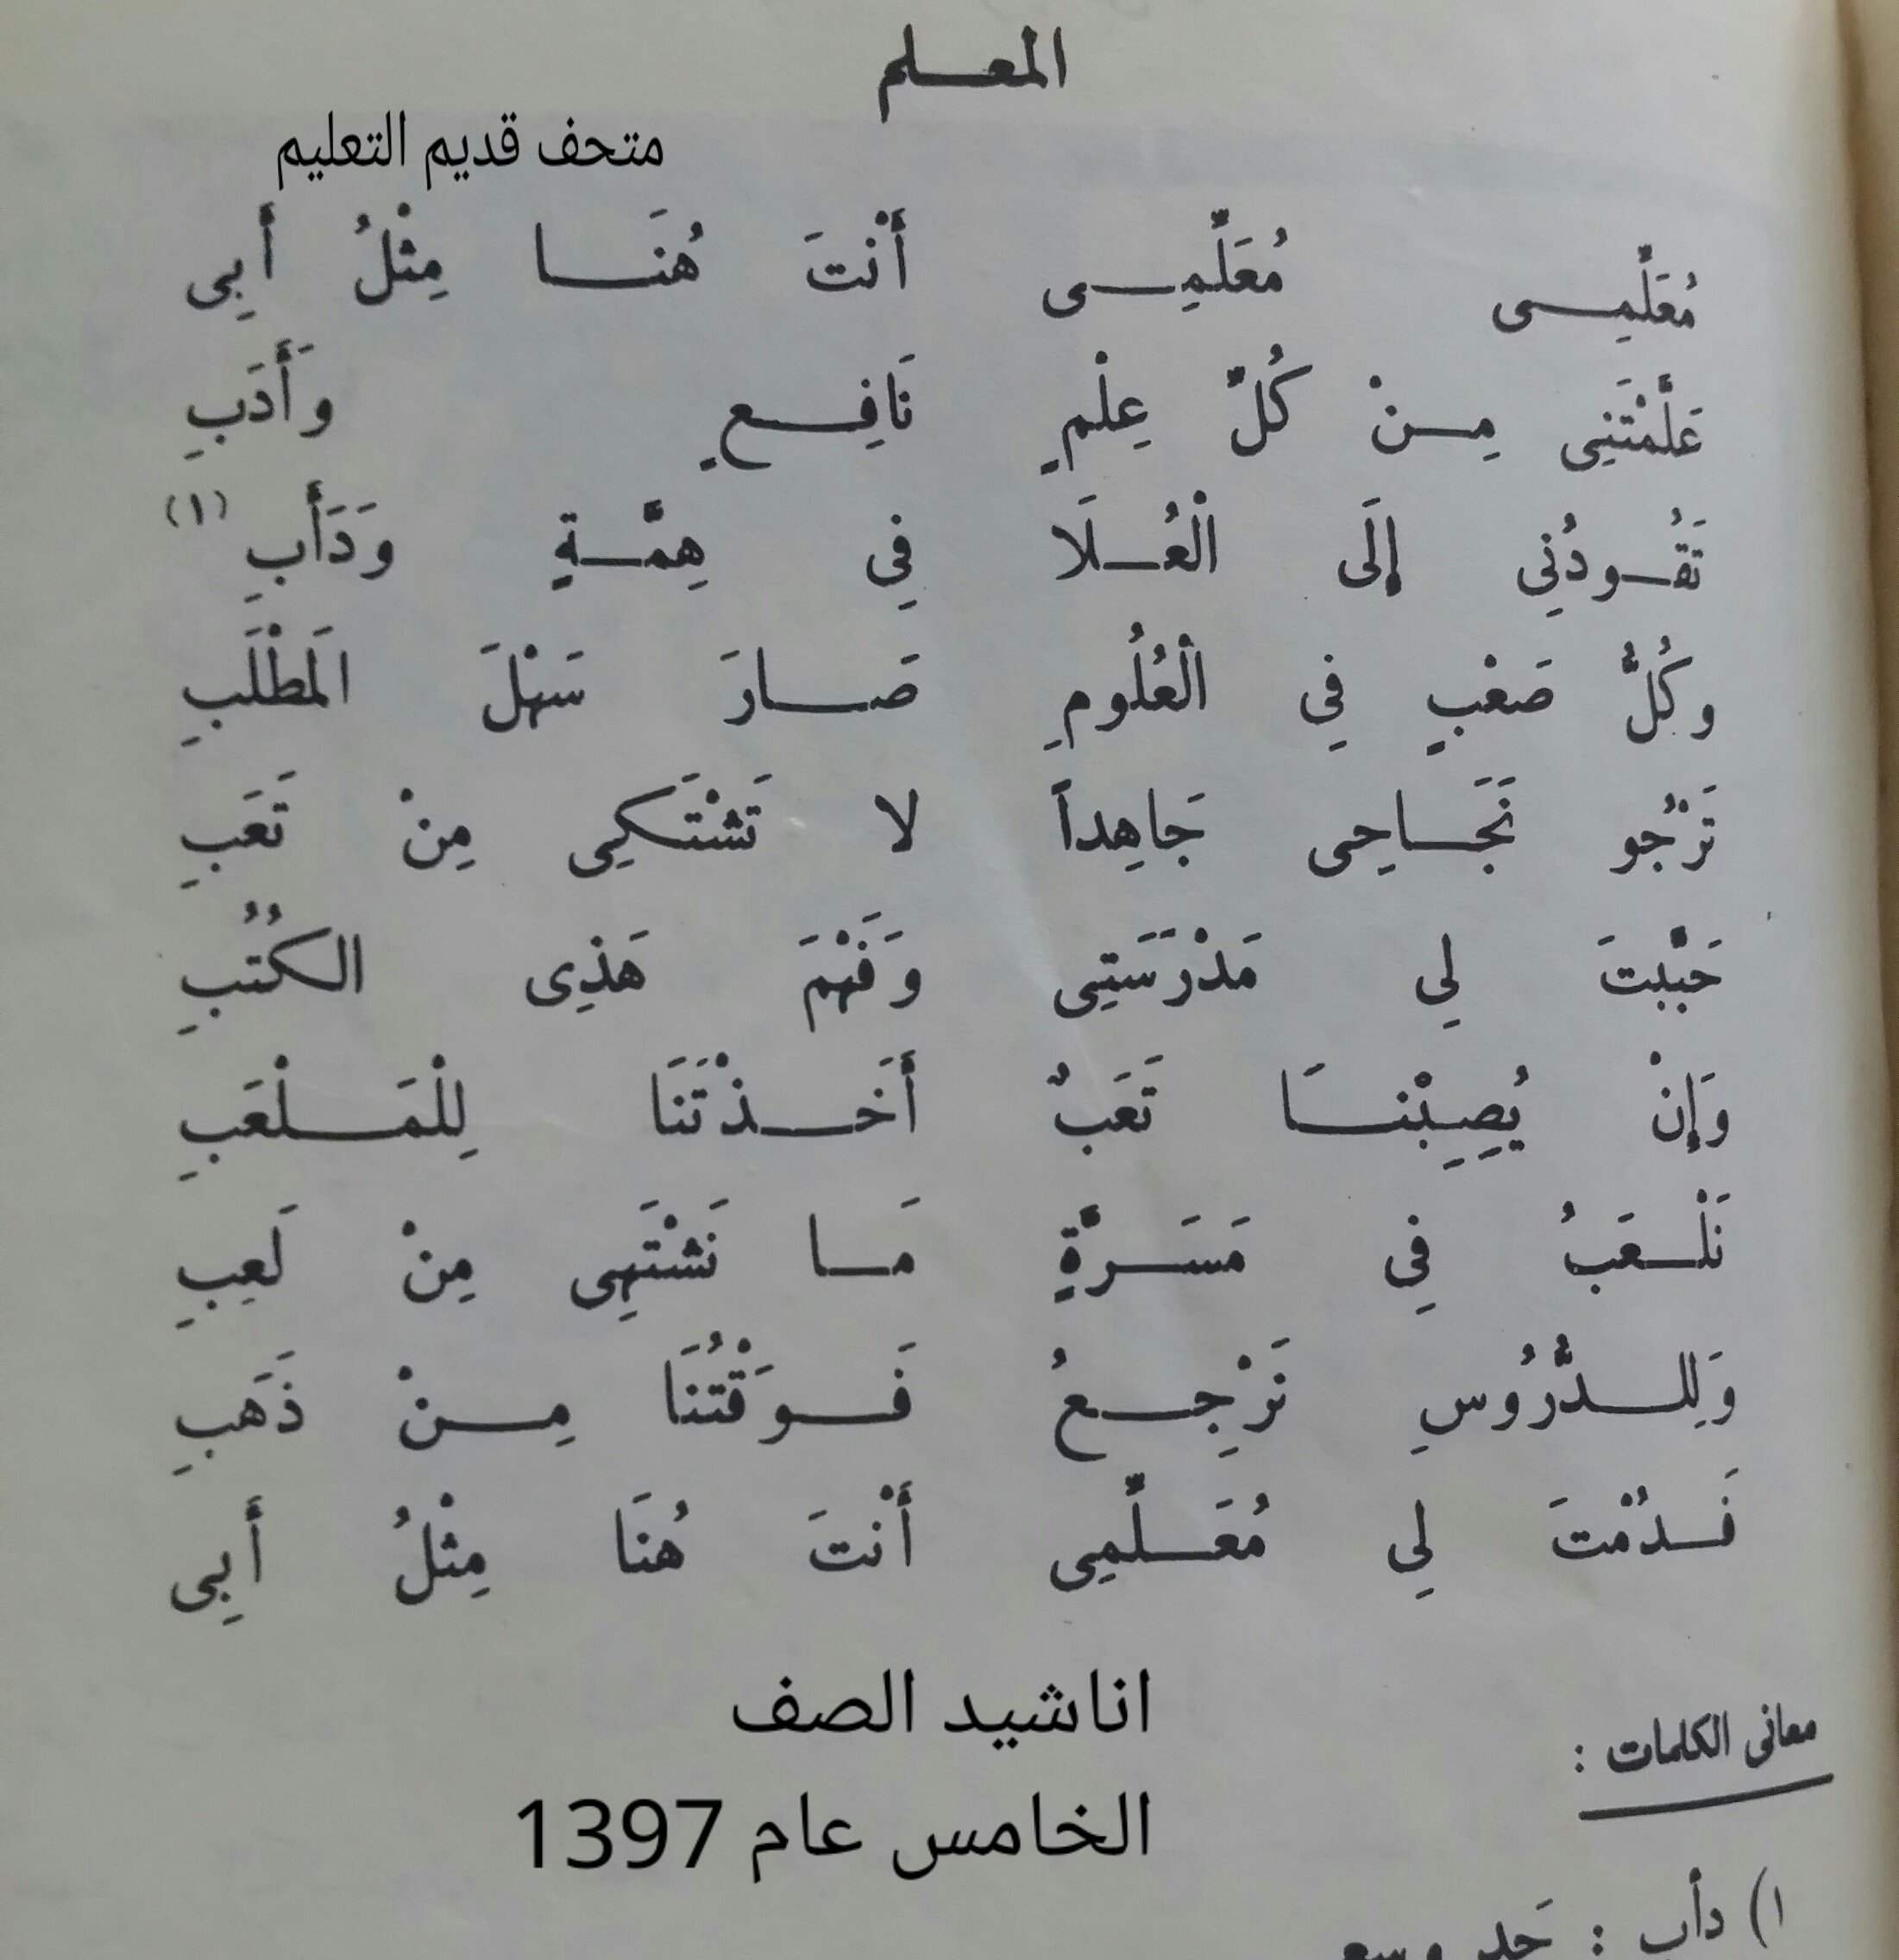 المعلم
متحف قديم التعليم
مُعَلِّمِى مُعَلِّمِى أَنْتَ هُنَا مِثْلُ أَبِى
عَلَّمْتَنِى مِنْ كُلِّ عِلْمٍ نَافِعٍ وَأَدَبِ
تَقُودُنِى إِلَى الْعُلَا فِى هِمَّةٍ وَدَأَبِ (١)
وكُلُّ صَعْبٍ فِى الْعُلُومِ صَارَ سَهْلَ الْمَطْلَبِ
تَرْجُو نَجَاحِى جَاهِداً لا تَشْتَكِى مِنْ تَعَبِ
حَبَّبْتَ لِى مَدْرَسَتِى وَفَهْمَ هَذِى الكُتُبِ
وَإِنْ يُصِبْنَا تَعَبٌ أَخَذْتَنَا لِلْمَلْعَبِ
نَلْعَبُ فِى مَسَرَّةٍ مَا نَشْتَهِى مِنْ لَعِبِ
وَلِلدُّرُوسِ نَرْجِعُ فَوَقْتُنَا مِنْ ذَهَبِ
فَدُمْتَ لِى مُعَلِّمِى أَنْتَ هُنَا مِثْلُ أَبِى
اناشيد الصف
الخامس عام 1397
معانى الكلمات :
١) دأب :